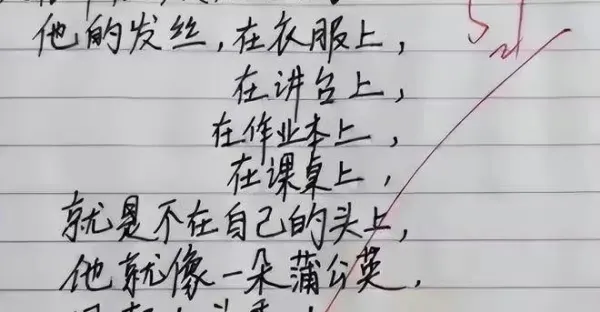 他的发丝，在衣服上，
在讲台上，
在作业本上，
在课桌上，
就是不在自己的头上，
他就像一朵蒲公英，